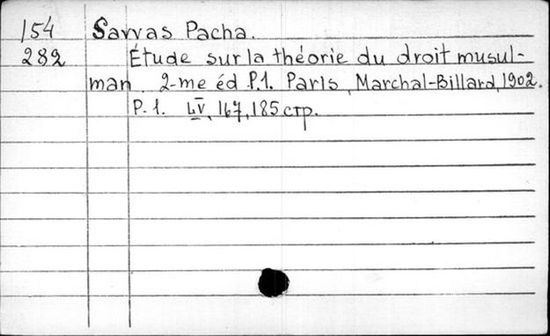 154 Savvas Pacha.
282 Étude sur la théorie du droit musul-
man. 2-me éd P.1. Paris, Marchal-Billard, 1902.
P. 1. LV, 167, 185 стр.